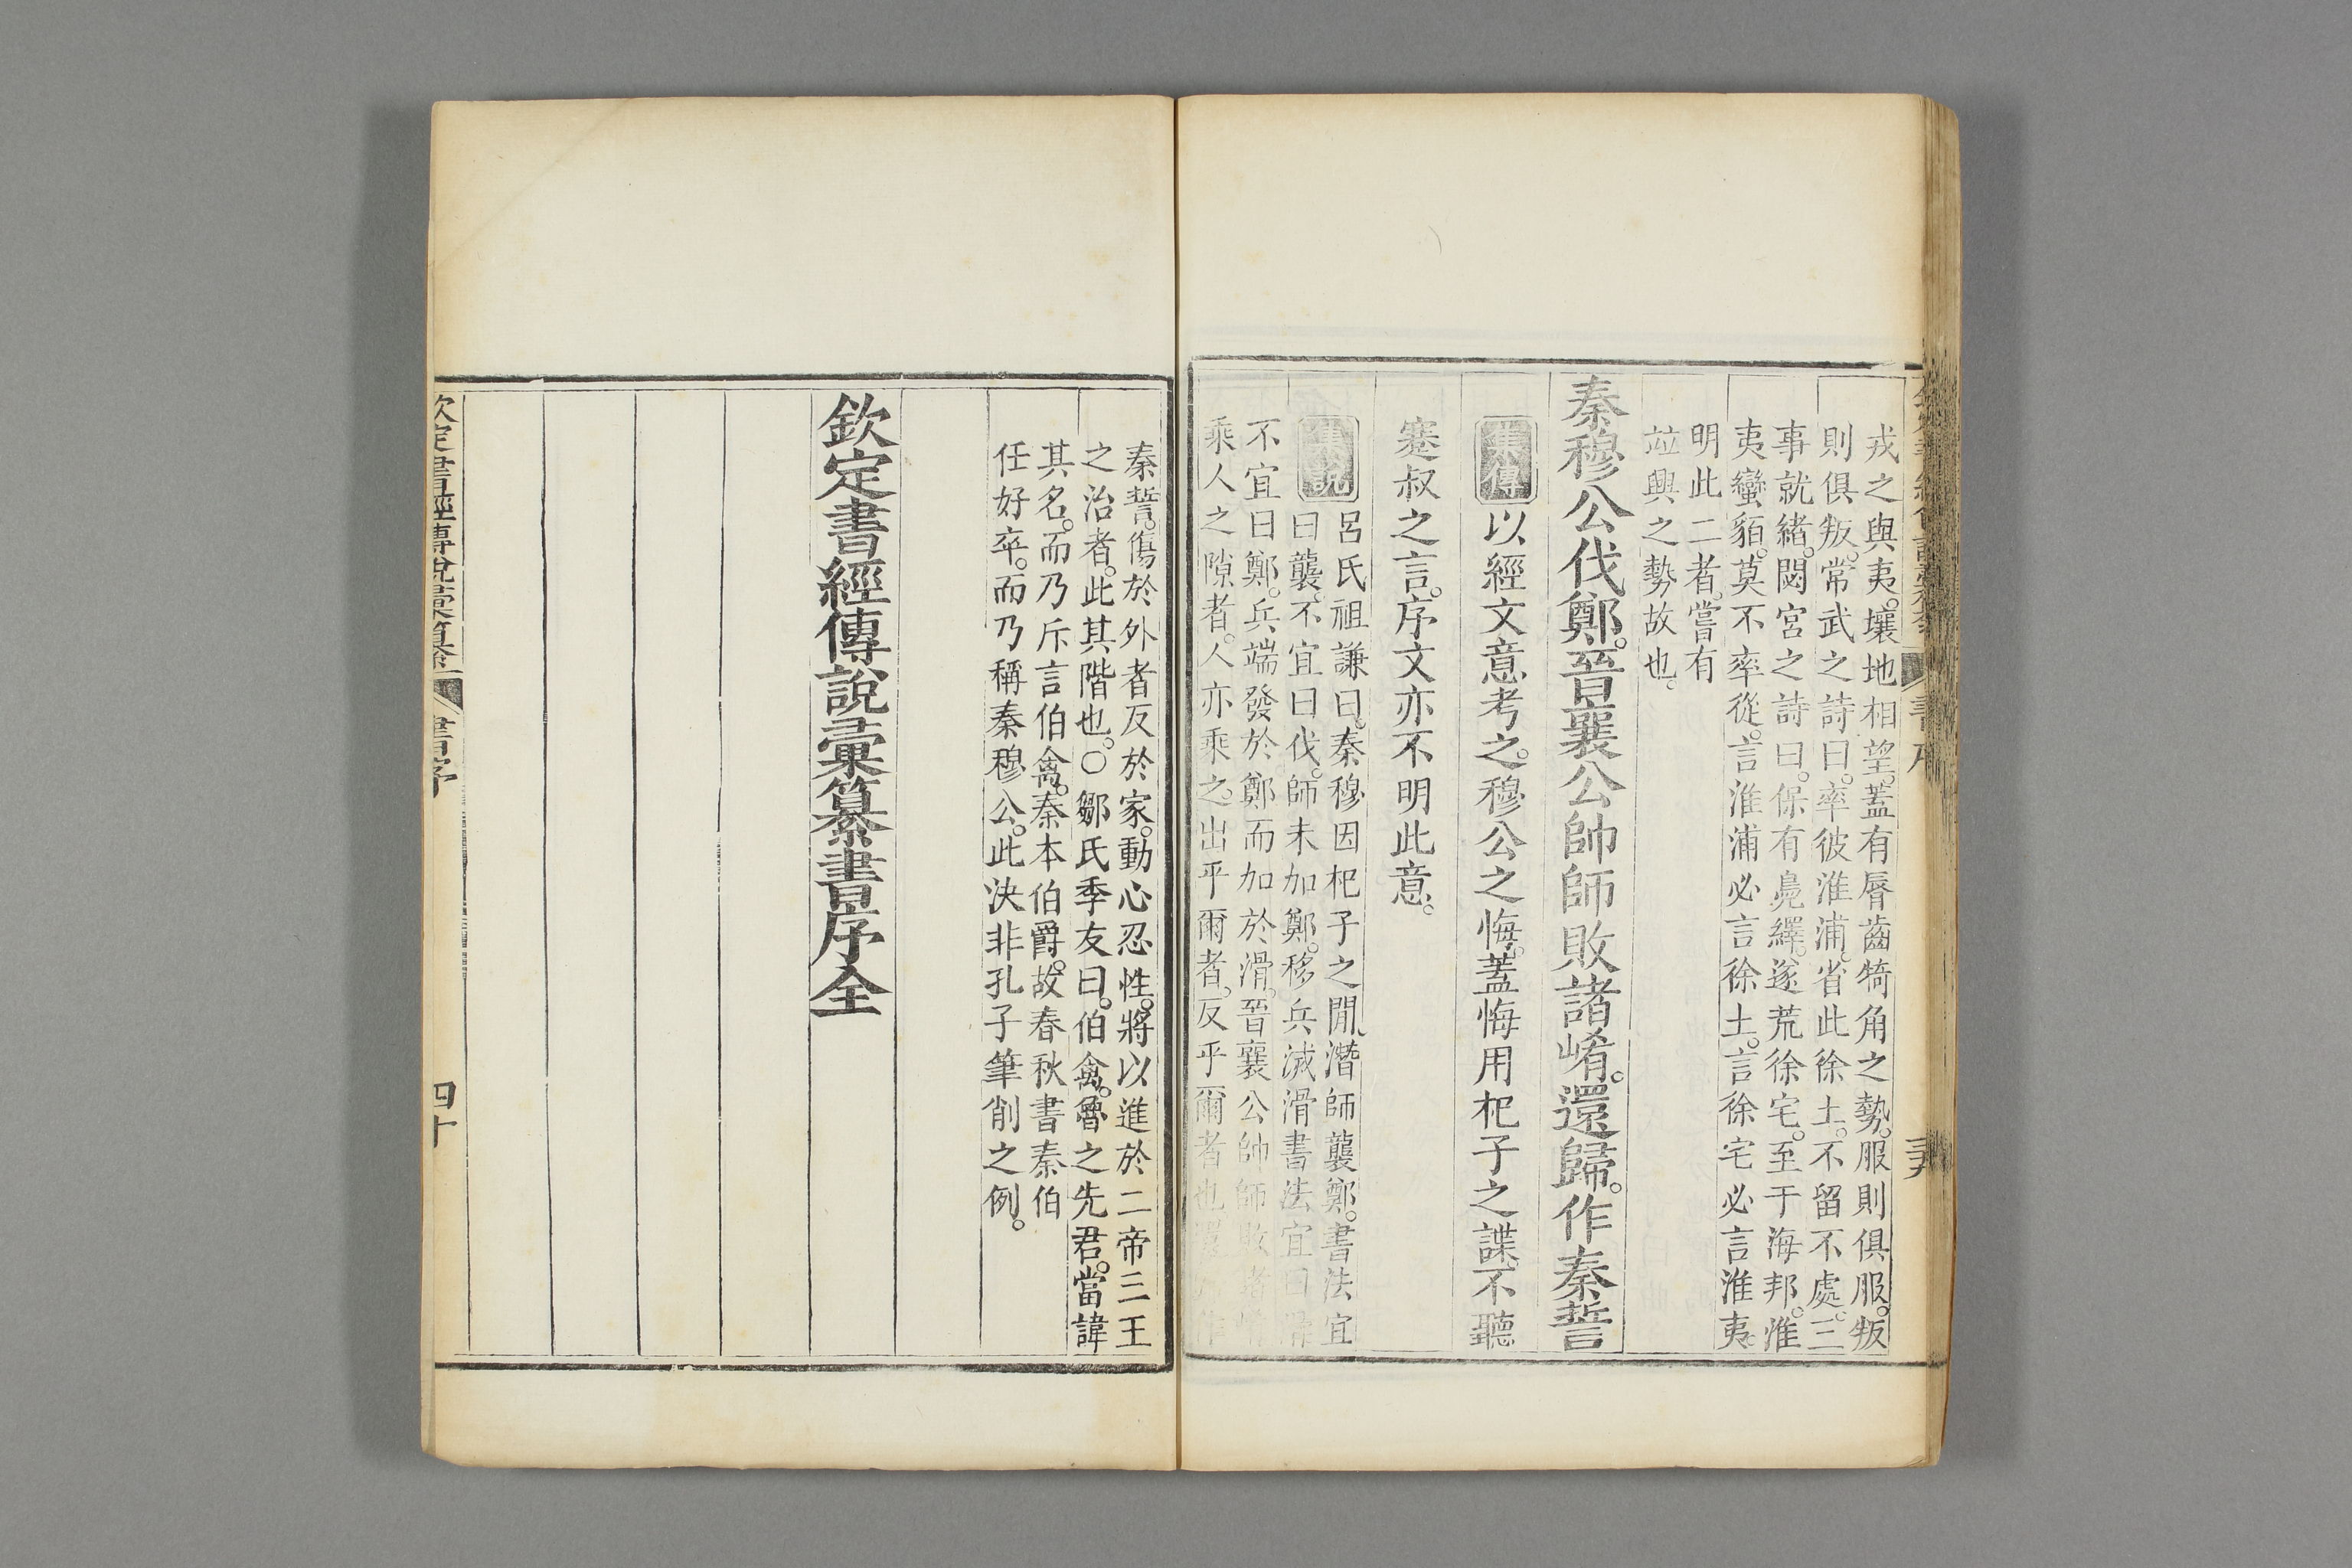 戎之與夷。壤地相望。蓋有脣齒犄角之勢。服則俱服。叛
則俱叛。常武之詩曰。率彼淮浦。省此徐土。不留不處。三
事就緒。閟宮之詩曰。保有鳧繹。遂荒徐宅。至于海邦。淮
夷蠻貊。莫不率從。言淮浦必言徐土。言徐宅必言淮夷。
明此二者。嘗有
竝興之勢故也。
秦穆公伐鄭。晉襄公帥師敗諸崤。還歸。作秦誓
集傳 以經文意考之。穆公之悔。蓋悔用杞子之諜。不聽
蹇叔之言。序文亦不明此意。
集說 呂氏祖謙曰。秦穆因杞子之閒、潛師襲鄭。書法宜
曰襲。不宜曰伐。師未加鄭。移兵滅滑書法宜曰滑
不宜曰鄭。兵端發於鄭而加於滑。晉襄公帥師敗者崤
乘人之隙者。人亦乘之。出乎爾者。反乎爾者也還歸作
秦誓。傷於外者反於家。動心忍性。將以進於二帝三王
之治者。此其階也。○鄒氏季友曰。伯禽。魯之先君。當諱
其名。而乃斥言伯禽。秦本伯爵。故春秋書秦伯
任好卒。而乃稱秦穆公。此決非孔子筆削之例。
欽定書經傳說彙纂書序全
欽定書經傳說彙纂 書序 四十